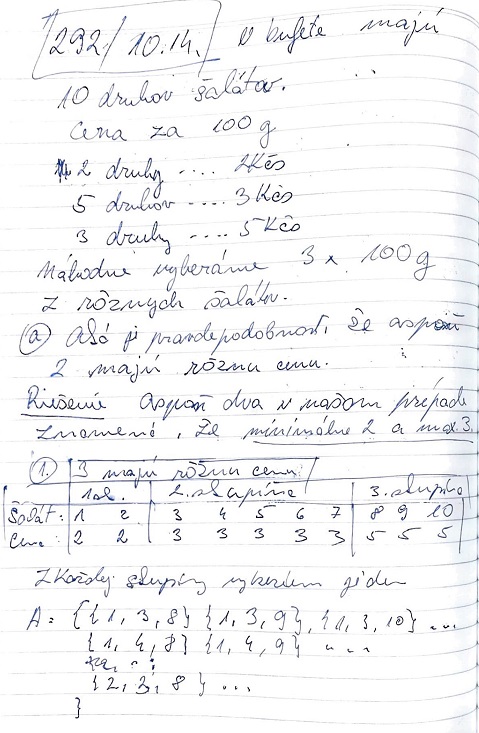 292/10.14. V bufete majú
10 druhov šalátov.
Cena za 100 g
2 druhy .... 2Kčs
5 druhov .... 3Kčs
3 druhy .... 5Kčs
Náhodne vyberáme 3 x 100g
z rôznych šalátov.
a) Aká je pravdepodobnosť, že aspoň
2 majú rôznu cenu.
Riešenie Aspoň dva v našom prípade
znamená, že minimálne 2 a max 3.
1. 3 majú rôznu cenu
1sk. 2. skupina 3. skupina
Šalát: 1 2 3 4 5 6 7 8 9 10
Cena: 2 2 3 3 3 3 3 5 5 5
Z každej skupiny vyberiem jeden
A = {{1, 3, 8} {1, 3, 9}, {1, 3, 10} ...
{1, 4, 8} {1, 4, 9} ...
{2, 3, 8} ...
}